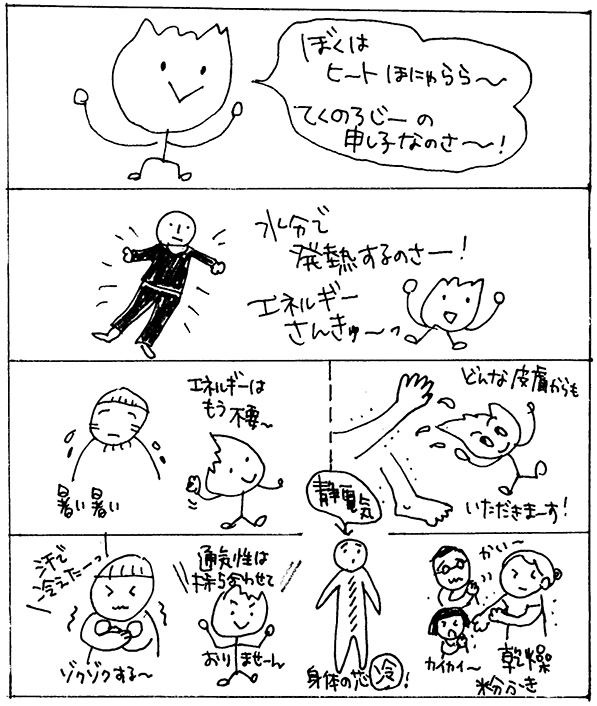 ぼくは
ヒートほにゃらら〜
てくのろじーの
申し子なのさ〜!
水分で
発熱するのさー!
エネルギー
さんきゅ〜っ
エネルギーは
もう不要〜
暑い暑い
どんな皮膚からも
いただきまーす!
静電気
汗で
冷えたーっ
ゾクゾクする〜
通気性は
持ち合わせて
おりませーん
身体の芯冷!
かい〜
カイカイ〜
乾燥
粉ふき